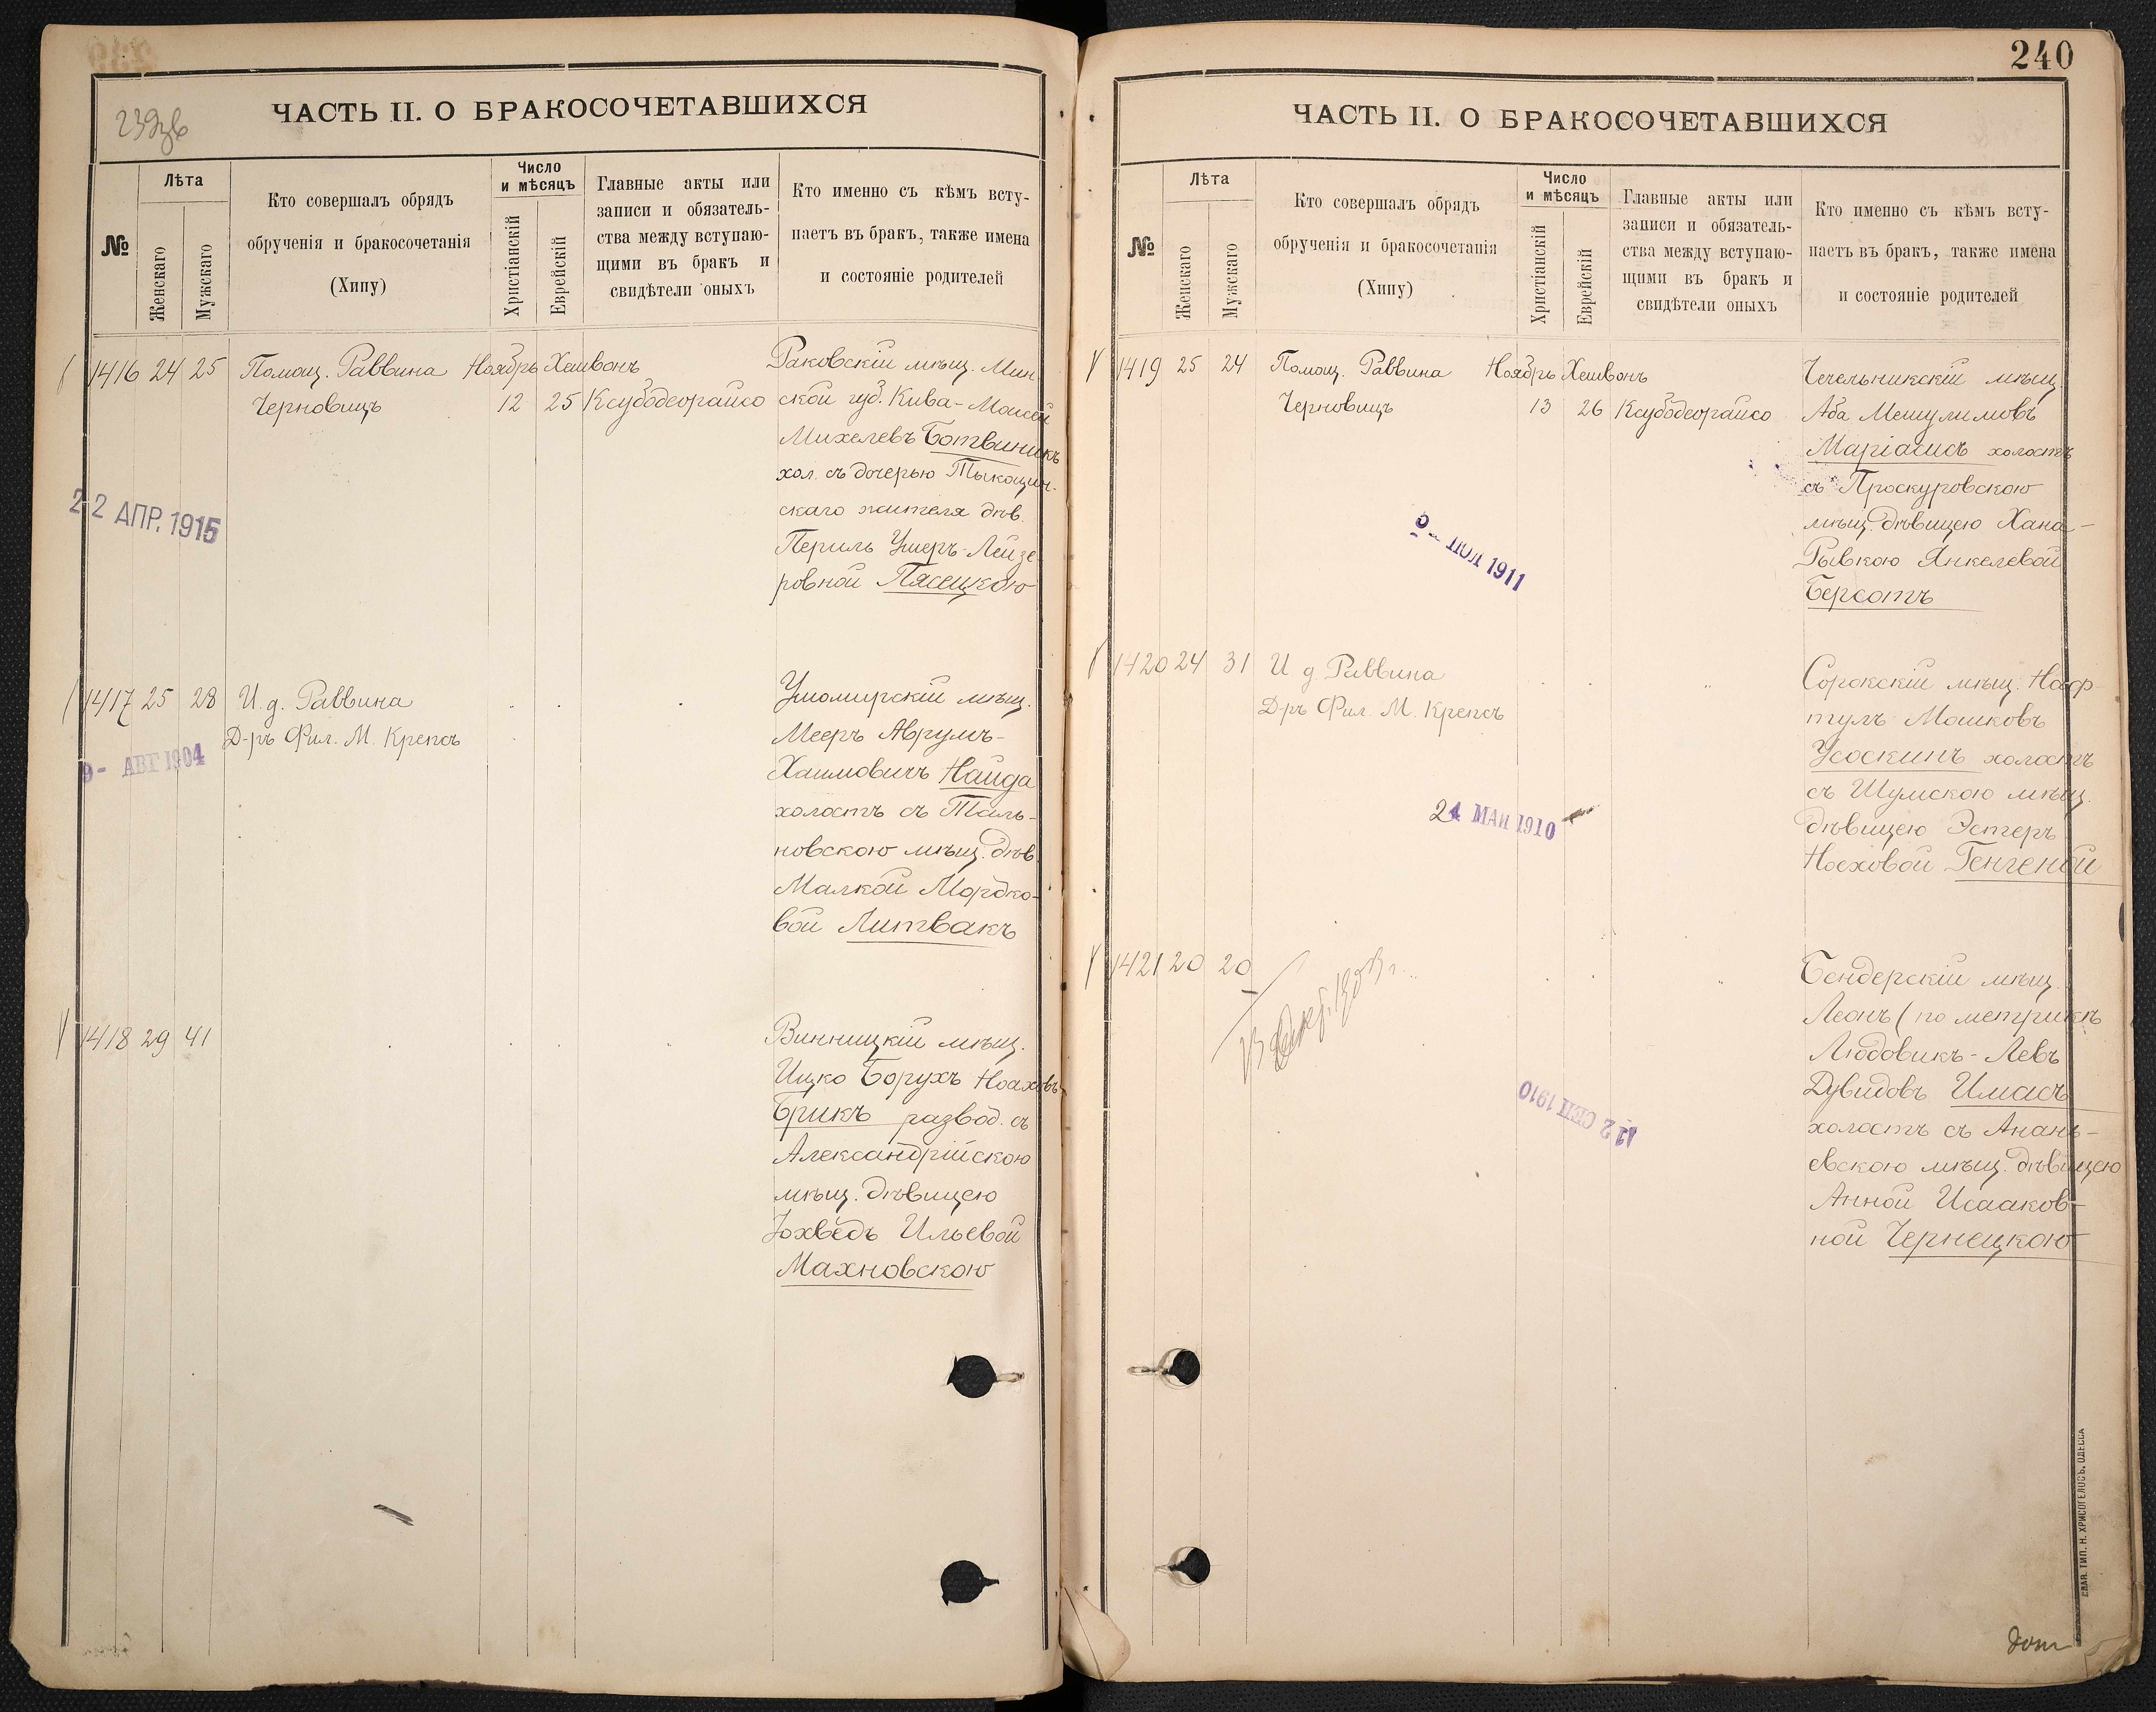 ЧАСТЬ II. О БРАКОСОЧЕТАВШИХСЯ
№
Лѣта
Женскаго
Мужскаго
Кто совершалъ обрядъ
обрученія и бракосочетанія
(Хипу)
Число
и мѣсяцъ
Христіанскій
Еврейскій
Главные акты или
записи и обязатель-
ства между вступаю-
щими въ бракъ и
свидѣтели оныхъ
Кто именно съ кѣмъ всту-
паетъ въ бракъ, также имена
и состояніе родителей
1416 24 25 Помощ. Раввина Ноябрь Хешвонъ
Черновицъ 12 25 Ксубодеорайсо
Раковскій мѣщ. Мин-
ской губ. Кива-Моисей
Михелевъ Ботвиникъ
хол. съ дочерью Тыкоцин-
скаго жителя дѣв.
Периль Ушеръ-Лейзе-
ровной Пясецкою
22 АПР. 1915
1417 25 28 И. д. Раввина
Д-ръ Фил. М. Крепсъ
9- АВГ 1904
Ушомирскій мѣщ.
Мееръ Аврумъ-
Хаимовичъ Найда
холостъ съ Таль-
новскою мѣщ. дѣв.
Малкой Мордко-
вой Литвакъ
1418 29 41
Винницкій мѣщ.
Ицко Борухъ Ноаховъ
Брикъ развод. съ
Александрійскою
мѣщ. дѣвицею
Іохведъ Ильевой
Махновскою
240
ЧАСТЬ II. О БРАКОСОЧЕТАВШИХСЯ
№
Лѣта
Женскаго
Мужскаго
Кто совершалъ обрядъ
обрученія и бракосочетанія
(Хипу)
Число
и мѣсяцъ
Христіанскій
Еврейскій
Главные акты или
записи и обязатель-
ства между вступаю-
щими въ бракъ и
свидѣтели оныхъ
Кто именно съ кѣмъ всту-
паетъ въ бракъ, также имена
и состояніе родителей
1419 25 24 Помощ. Раввина Ноябрь Хешвонъ
Черновицъ 13 26 Ксубодеорайсо
Чечельникскій мѣщ.
Аба Мешулимовъ
Маріасисъ холостъ
съ Проскуровскою
мѣщ. дѣвицею Хана-
Рывкою Янкелевой
Берсотъ
1911
1420 24 31 И д. Раввина
Д-ръ Фил. М. Крепсъ
24 МАЙ 1910
Сорокскій мѣщ. Наф-
тулъ Мошковъ
Усоскинъ холостъ
съ Шумскою мѣщ.
дѣвицею Эстеръ
Ноеховой Генгеной
1421 20 20
12 СЕП 1910
Бендерскій мѣщ.
Леонъ (по метрикѣ
Людовикъ-Левъ
Дувидовъ Имасъ
холостъ съ Анань-
евскою мѣщ. дѣвицею
Анной Исааков-
ной Чернецкою
СЛАВ. ТИП. Н. ХРИСОГЕЛОСЪ, ОДЕССА